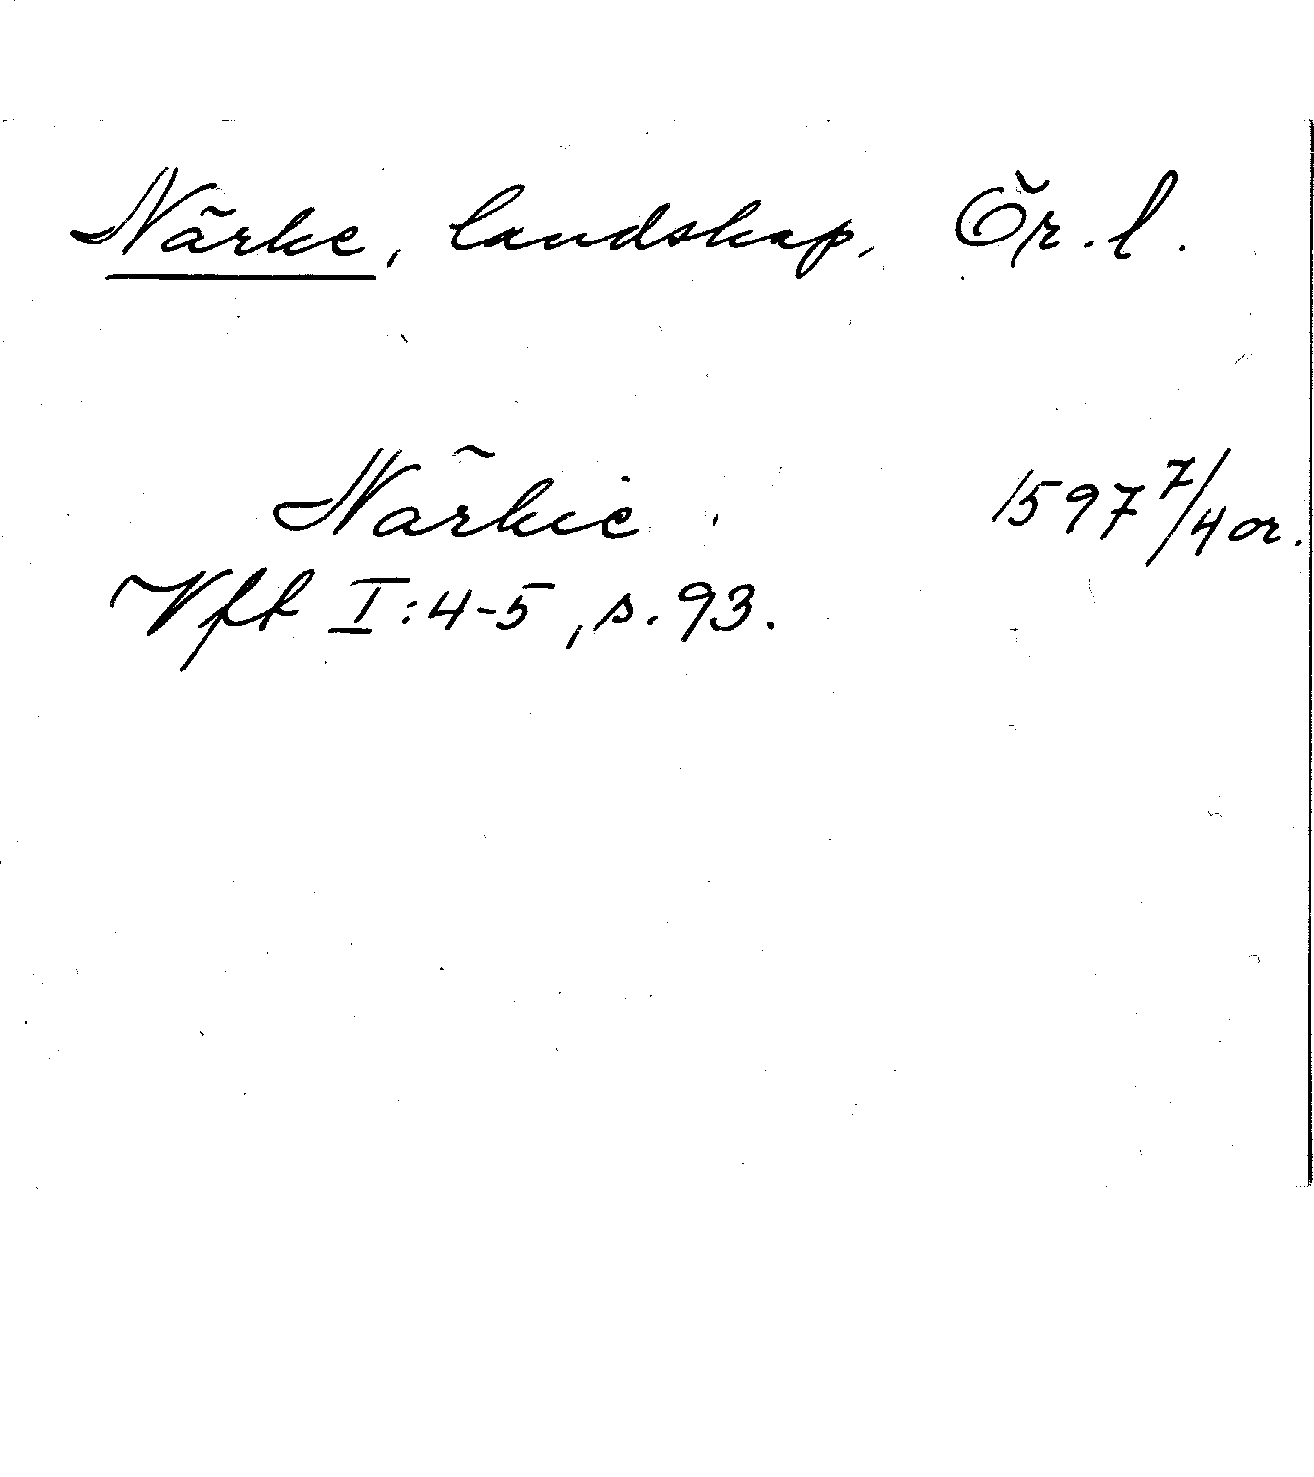 Närke, landskap, Ör. l.
Närkie 1597 7/4 or.
Vft I:4-5, s. 93.